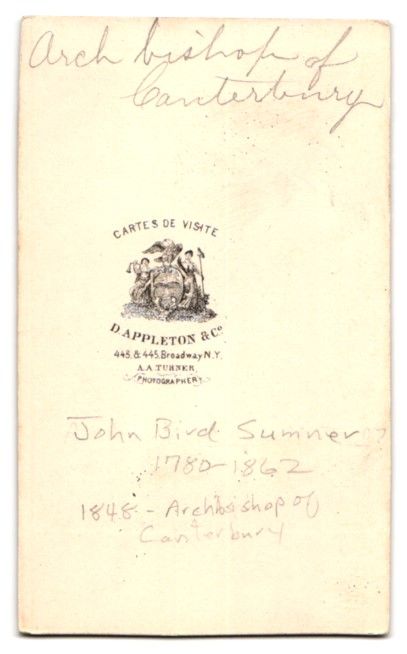 Arch bishop of
Canterbury
CARTES DE VISITE
D. APPLETON & Co
443 & 445 Broadway N.Y.
A.A. TURNER,
PHOTOGRAPHER
John Bird Sumner ?
1780-1862
1848 - Archbishop of
Canterbury